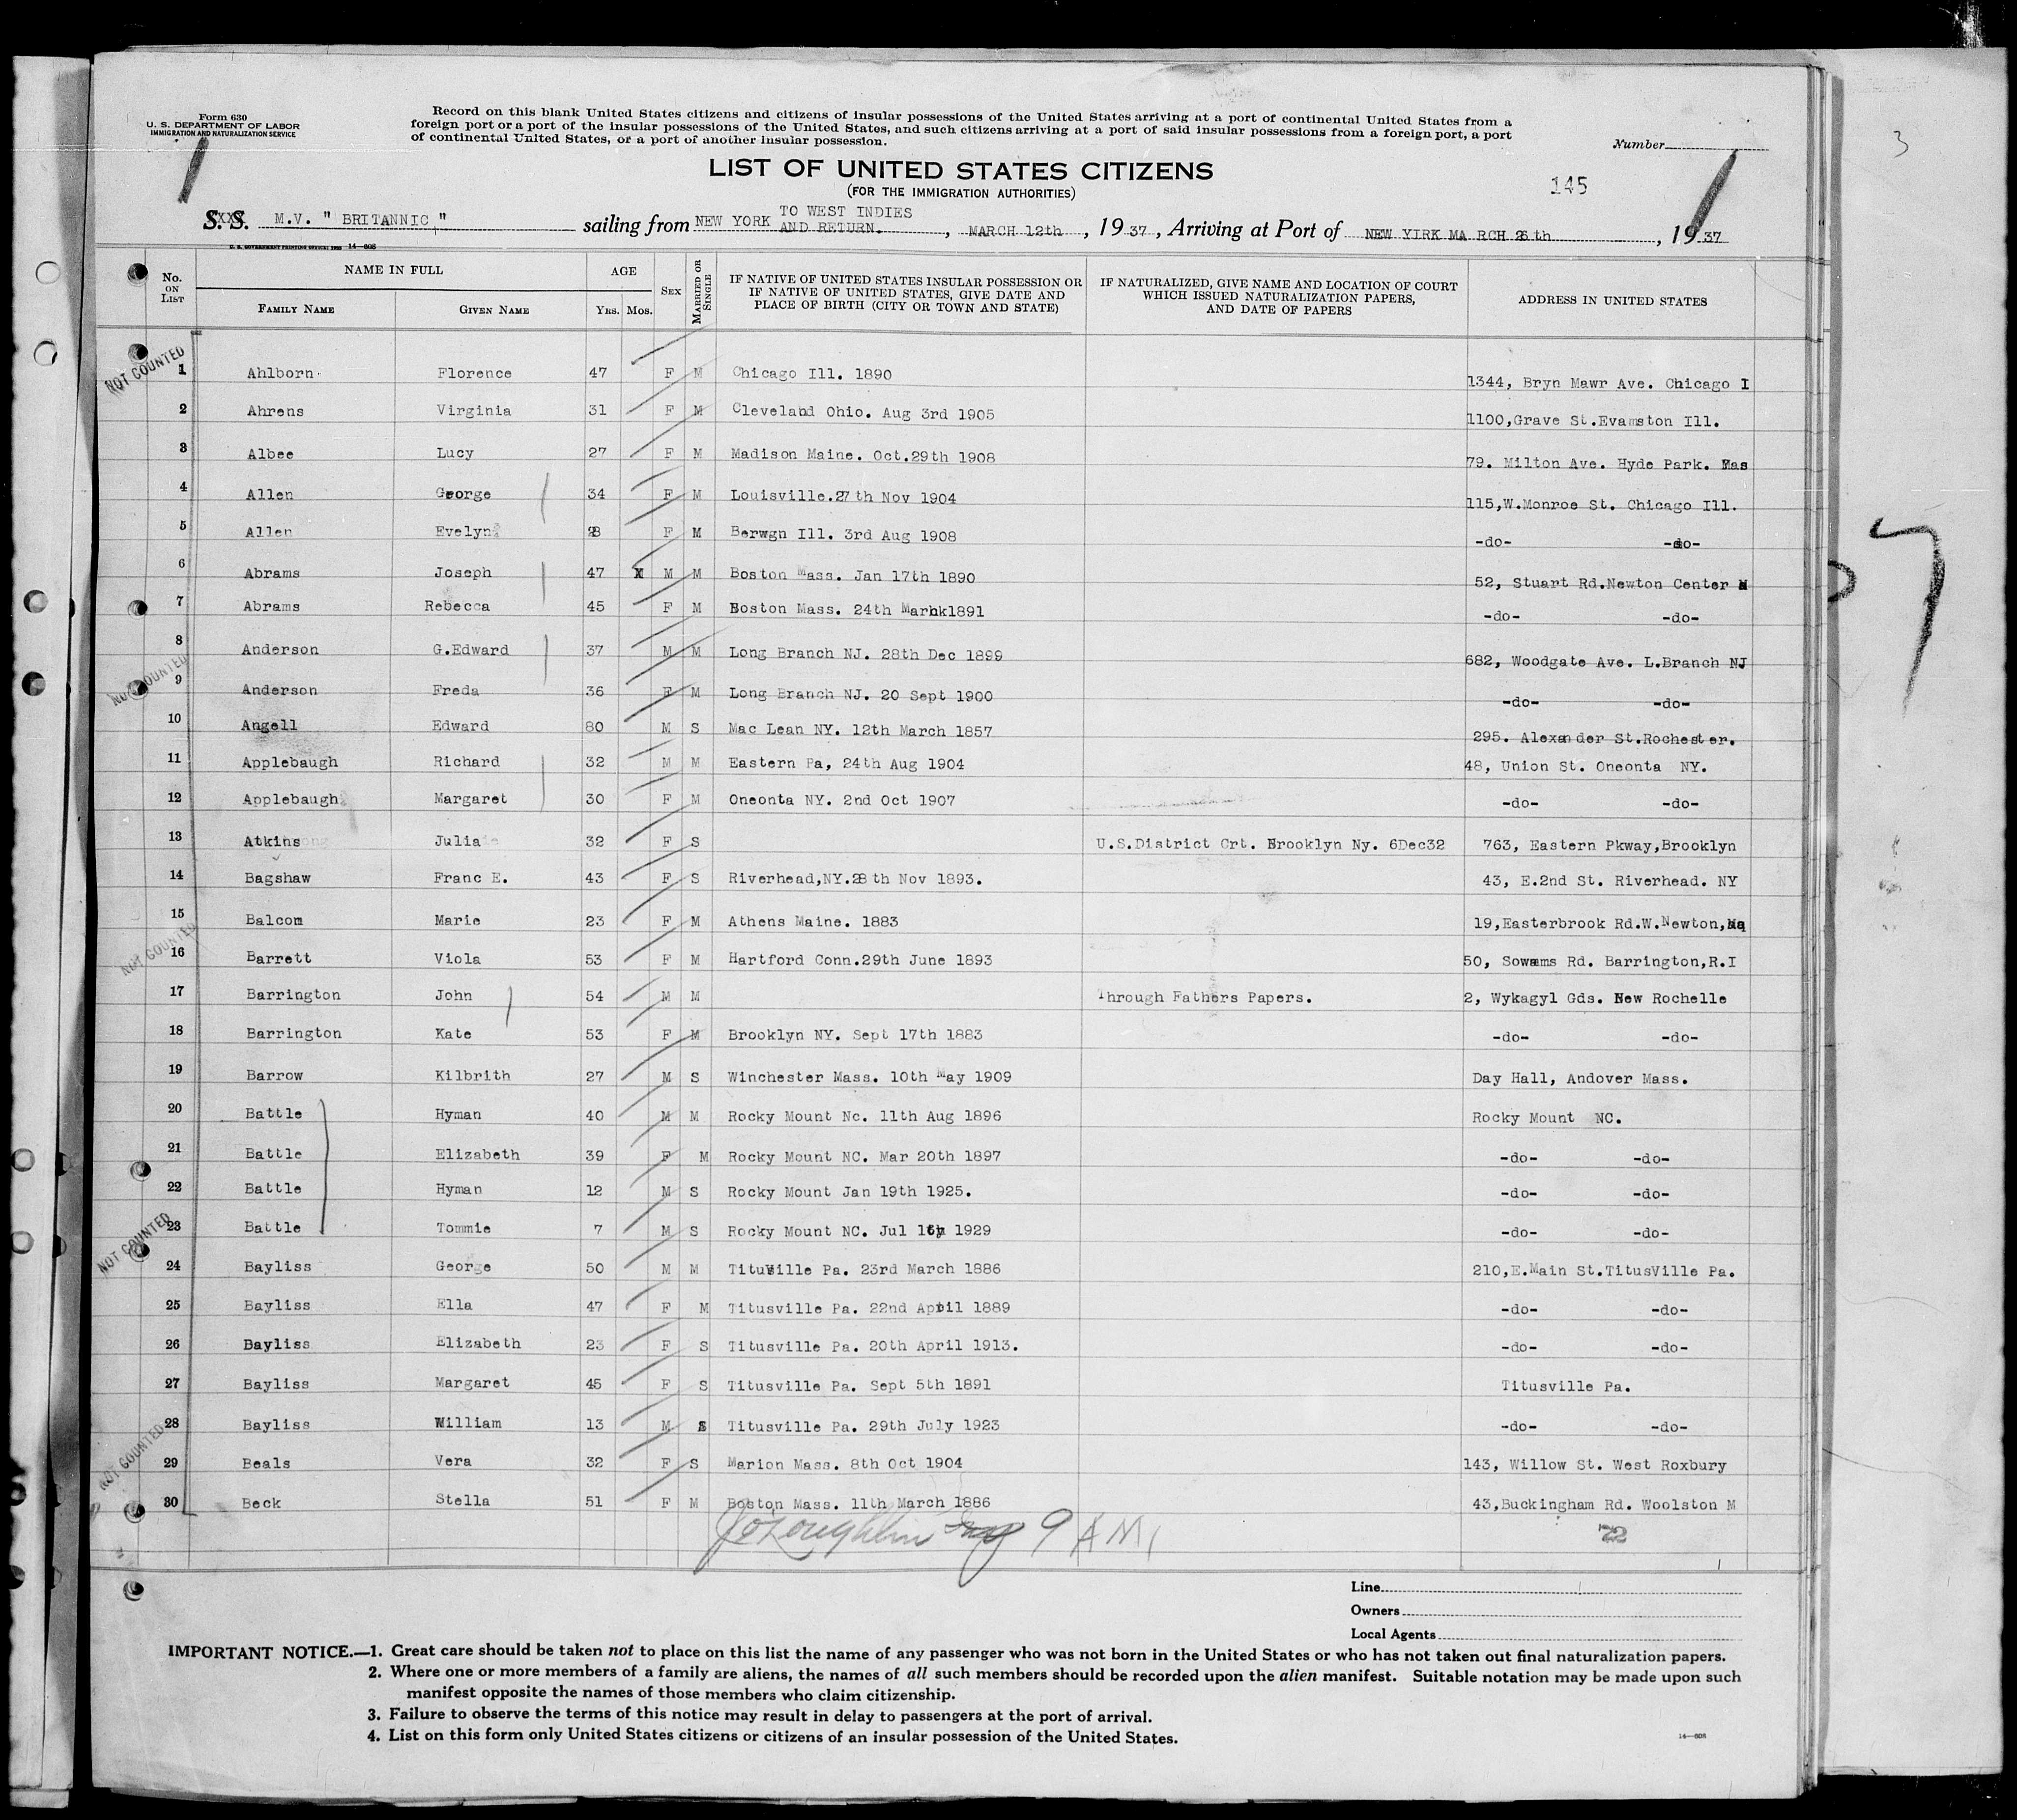 Form 630
U. S. DEPARTMENT OF LABOR
IMMIGRATION AND NATURALIZATION SERVICE
Record on this blank United States citizens and citizens of insular possessions of the United States arriving at a port of continental United States from a
foreign port or a port of the insular possessions of the United States, and such citizens arriving at a port of said insular possessions from a foreign port, a port
of continental United States, or a port of another insular possession.
Number
LIST OF UNITED STATES CITIZENS
(FOR THE IMMIGRATION AUTHORITIES)
145
3
S. S. M.V. " BRITANNIC " sailing from NEW YORK TO WEST INDIES AND RETURN. , MARCH 12th , 1937 , Arriving at Port of NEW YIRK MA RCH 26th , 1937
U. S. GOVERNMENT PRINTING OFFICE: 14—608
No. ON LIST NAME IN FULL AGE SEX MARRIED OR SINGLE IF NATIVE OF UNITED STATES INSULAR POSSESSION OR IF NATIVE OF UNITED STATES, GIVE DATE AND PLACE OF BIRTH (CITY OR TOWN AND STATE) IF NATURALIZED, GIVE NAME AND LOCATION OF COURT WHICH ISSUED NATURALIZATION PAPERS, AND DATE OF PAPERS ADDRESS IN UNITED STATES
FAMILY NAME GIVEN NAME YRS. MOS.
NOT COUNTED
1 Ahlborn Florence 47 F M Chicago Ill. 1890 1344, Bryn Mawr Ave. Chicago I
2 Ahrens Virginia 31 F M Cleveland Ohio. Aug 3rd 1905 1100,Grave St.Evamston Ill.
3 Albee Lucy 27 F M Madison Maine. Oct.29th 1908 79. Milton Ave. Hyde Park. Mas
4 Allen George 34 F M Louisville.27th Nov 1904 115,W.Monroe St. Chicago Ill.
5 Allen Evelyn 28 F M Berwgn Ill. 3rd Aug 1908 -do- -do-
6 Abrams Joseph 47 M M Boston Mass. Jan 17th 1890 52, Stuart Rd.Newton Center M
7 Abrams Rebecca 45 F M Boston Mass. 24th Marhk1891 -do- -do-
8 Anderson G.Edward 37 M M Long Branch NJ. 28th Dec 1899 682, Woodgate Ave. L.Branch NJ
NOT COUNTED
9 Anderson Freda 36 F M Long Branch NJ. 20 Sept 1900 -do- -do-
10 Angell Edward 80 M S Mac Lean NY. 12th March 1857 295. Alexander St.Rochester.
11 Applebaugh Richard 32 M M Eastern Pa, 24th Aug 1904 48, Union St. Oneonta NY.
12 Applebaugh Margaret 30 F M Oneonta NY. 2nd Oct 1907 -do- -do-
13 Atkins Julia 32 F S U.S.District Crt. Brooklyn Ny. 6Dec32 763, Eastern Pkway,Brooklyn
14 Bagshaw Franc E. 43 F S Riverhead,NY.28th Nov 1893. 43, E.2nd St. Riverhead. NY
15 Balcom Marie 23 F M Athens Maine. 1883 19,Easterbrook Rd.W.Newton,Ma
NOT COUNTED
16 Barrett Viola 53 F M Hartford Conn.29th June 1893 50, Sowams Rd. Barrington,R.I
17 Barrington John 54 M M Through Fathers Papers. 2, Wykagyl Gds. New Rochelle
18 Barrington Kate 53 F M Brooklyn NY. Sept 17th 1883 -do- -do-
19 Barrow Kilbrith 27 M S Winchester Mass. 10th May 1909 Day Hall, Andover Mass.
20 Battle Hyman 40 M M Rocky Mount Nc. 11th Aug 1896 Rocky Mount NC.
21 Battle Elizabeth 39 F M Rocky Mount NC. Mar 20th 1897 -do- -do-
22 Battle Hyman 12 M S Rocky Mount Jan 19th 1925. -do- -do-
NOT COUNTED
23 Battle Tommie 7 M S Rocky Mount NC. Jul 1929 -do- -do-
24 Bayliss George 50 M M Titusville Pa. 23rd March 1886 210,E.Main St.TitusVille Pa.
25 Bayliss Ella 47 F M Titusville Pa. 22nd April 1889 -do- -do-
26 Bayliss Elizabeth 23 F S Titusville Pa. 20th April 1913. -do- -do-
27 Bayliss Margaret 45 F S Titusville Pa. Sept 5th 1891 Titusville Pa.
NOT COUNTED
28 Bayliss William 13 M S Titusville Pa. 29th July 1923 -do- -do-
29 Beals Vera 32 F S Marion Mass. 8th Oct 1904 143, Willow St. West Roxbury
30 Beck Stella 51 F M Boston Mass. 11th March 1886 43,Buckingham Rd. Woolston M
9 AM
22
Line
Owners
Local Agents
IMPORTANT NOTICE.—1. Great care should be taken not to place on this list the name of any passenger who was not born in the United States or who has not taken out final naturalization papers.
2. Where one or more members of a family are aliens, the names of all such members should be recorded upon the alien manifest. Suitable notation may be made upon such
manifest opposite the names of those members who claim citizenship.
3. Failure to observe the terms of this notice may result in delay to passengers at the port of arrival.
4. List on this form only United States citizens or citizens of an insular possession of the United States.
14—608